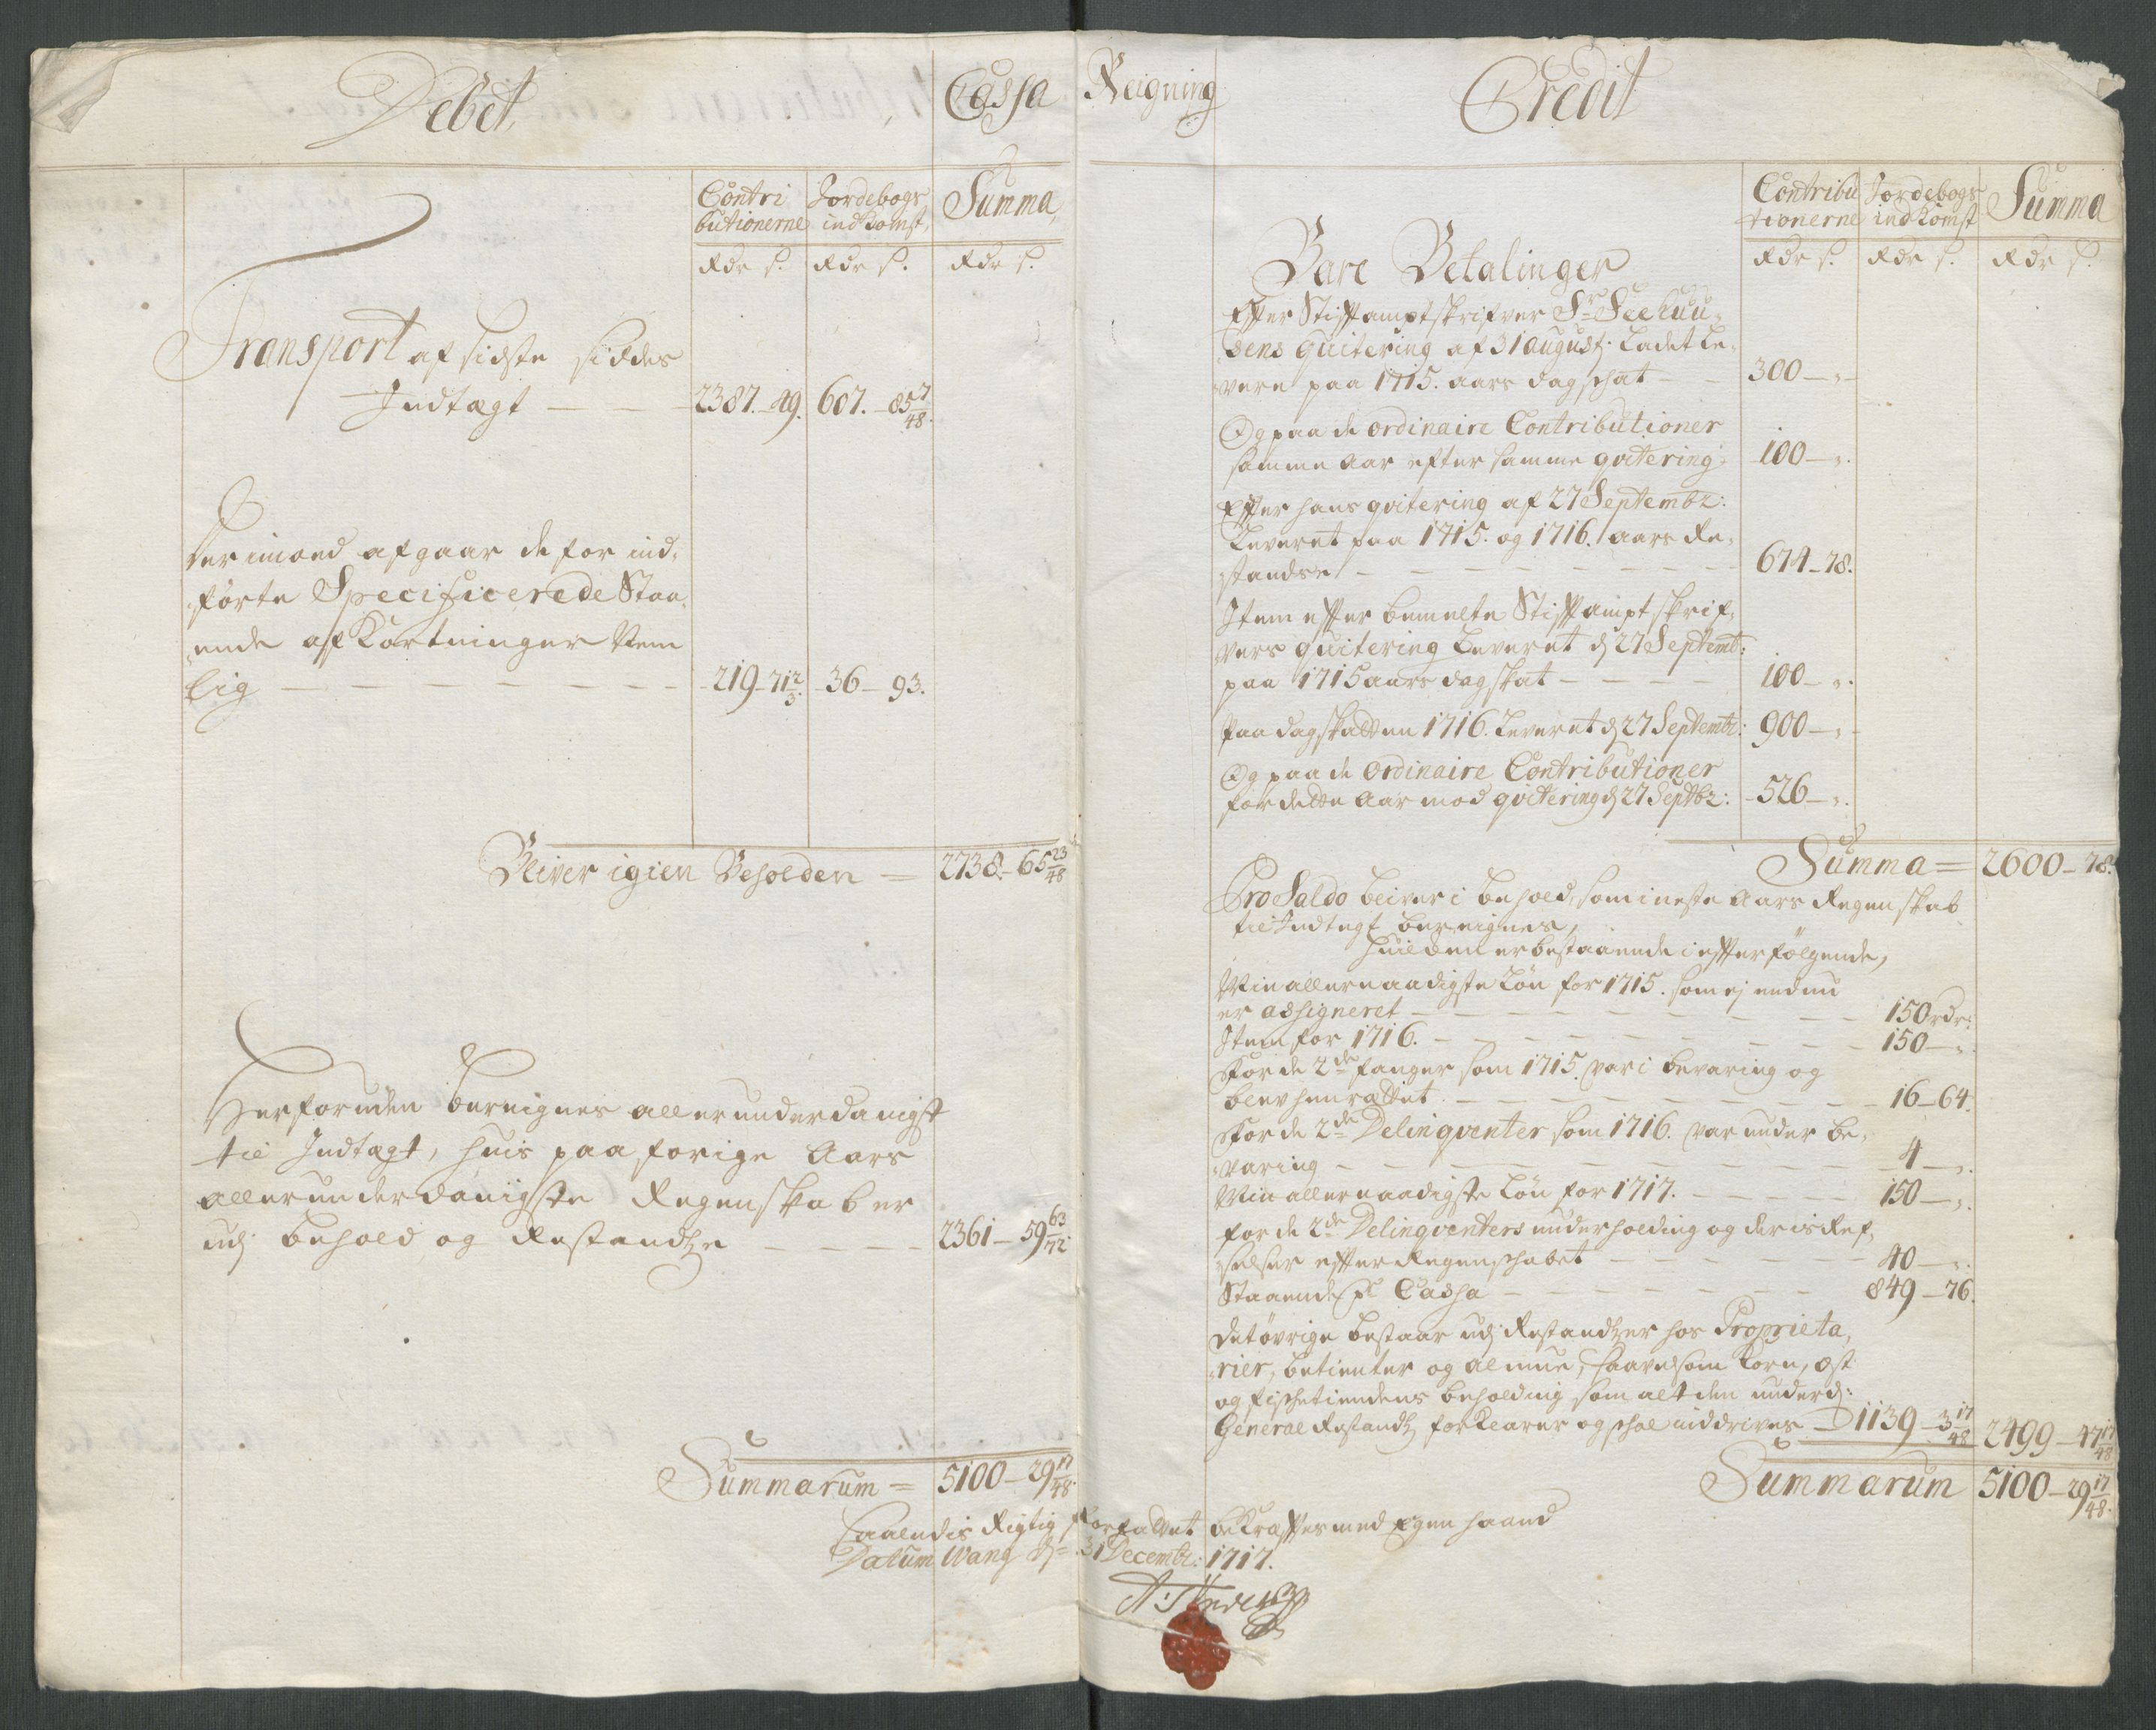 Debet,
Cassa
Contri
butionerne
Jordebogs
indkomst,
Summa,
Rdr s.
Rdr s.
Rdr s.
Transport af sidste sides
Indtægt — — — 2387.-49. 607.-85 7/48.
Derimoed afgaar de for ind,
førte Specificerede Staa,
ende afkortninger Nem
lig — — — — — — — 219-71 2/3. 36-93.
Bliver igien Beholden = 2738.-65 23/48
Herforuden bereignes allerunderdanigst
til Indtægt, huis paa forige Aars
allerunderdanigste Regenskaber
udj behold og Restandtze — — — 2361-59 63/72.
Summarum = 5100-29 17/48.
Reigning
Credit
Contribu
tionerne
Jordebogs
indkomst
Summa
Rdr s.
Rdr s.
Rdr s.
Bare Betalinger
Effter Stiftamptskrifver Sr Seehuu,
sens quitering af 31 august: Ladet Le,
vere paa 1715. aars dagschat — — 300 — „ —
Og paa de ordinaire Contributioner
samme Aar efter samme qvitering. 100 — „.
Effter hans qvitering af 27 Septembr:
Leveret paa 1715. og 1716. aars Re,
standse — — — — — — — 674-78.
Item effter bemelte Stiftamptskrif,
vers quitering Leveret d 27 Septemb:
paa 1715 aars dagskat — — — — 100 — „.
Paa dagskatten 1716. Leveret d 27 Septembr: 900 — „ —
Og paa de Ordinaire Contributioner
for dette Aar mod qvitering d 27 Septbr: 526 — „.
Summa = 2600-78.
Pro Saldo bliver i behold, som i neste Aars Regenskab
til Indtegt bereignes,
huilcken er bestaaende i effterfølgende,
Min allernaadigste Løn for 1715. som ej endnu
er assigneret — — — — — — — 150 rdr:
Item for 1716. — — — — — — — 150 — „.
For de 2de fanger som 1715. var i bevaring og
blev henrettet. — — — — — — — 16-64.
For de 2de Delinqventer som 1716. var under be,
varing — — — — — — — 4 — „.
Min allernaadigste Løn for 1717. — — — — 150 — „.
for de 2de Delinqventers underholding og deris Ref,
selser effter Regenschabet — — — — — 40 — „.
Staaende pr Cassa — — — — — — 849-76.
det øvrige bestaar udj Restandtzer hos Proprieta,
rier, betienter og almue, saavelsom Korn, ost
og fischetiendens beholding som alt den underd:
General Restandtz forklarer og schal inddrives — 1139-3 17/48 2499-47 17/48
Summarum 5100-29 17/48.
Saaledis Rigtig forfattet bekræfftes med Egen haand
Datum Wang d= 31 Decembr: 1717.